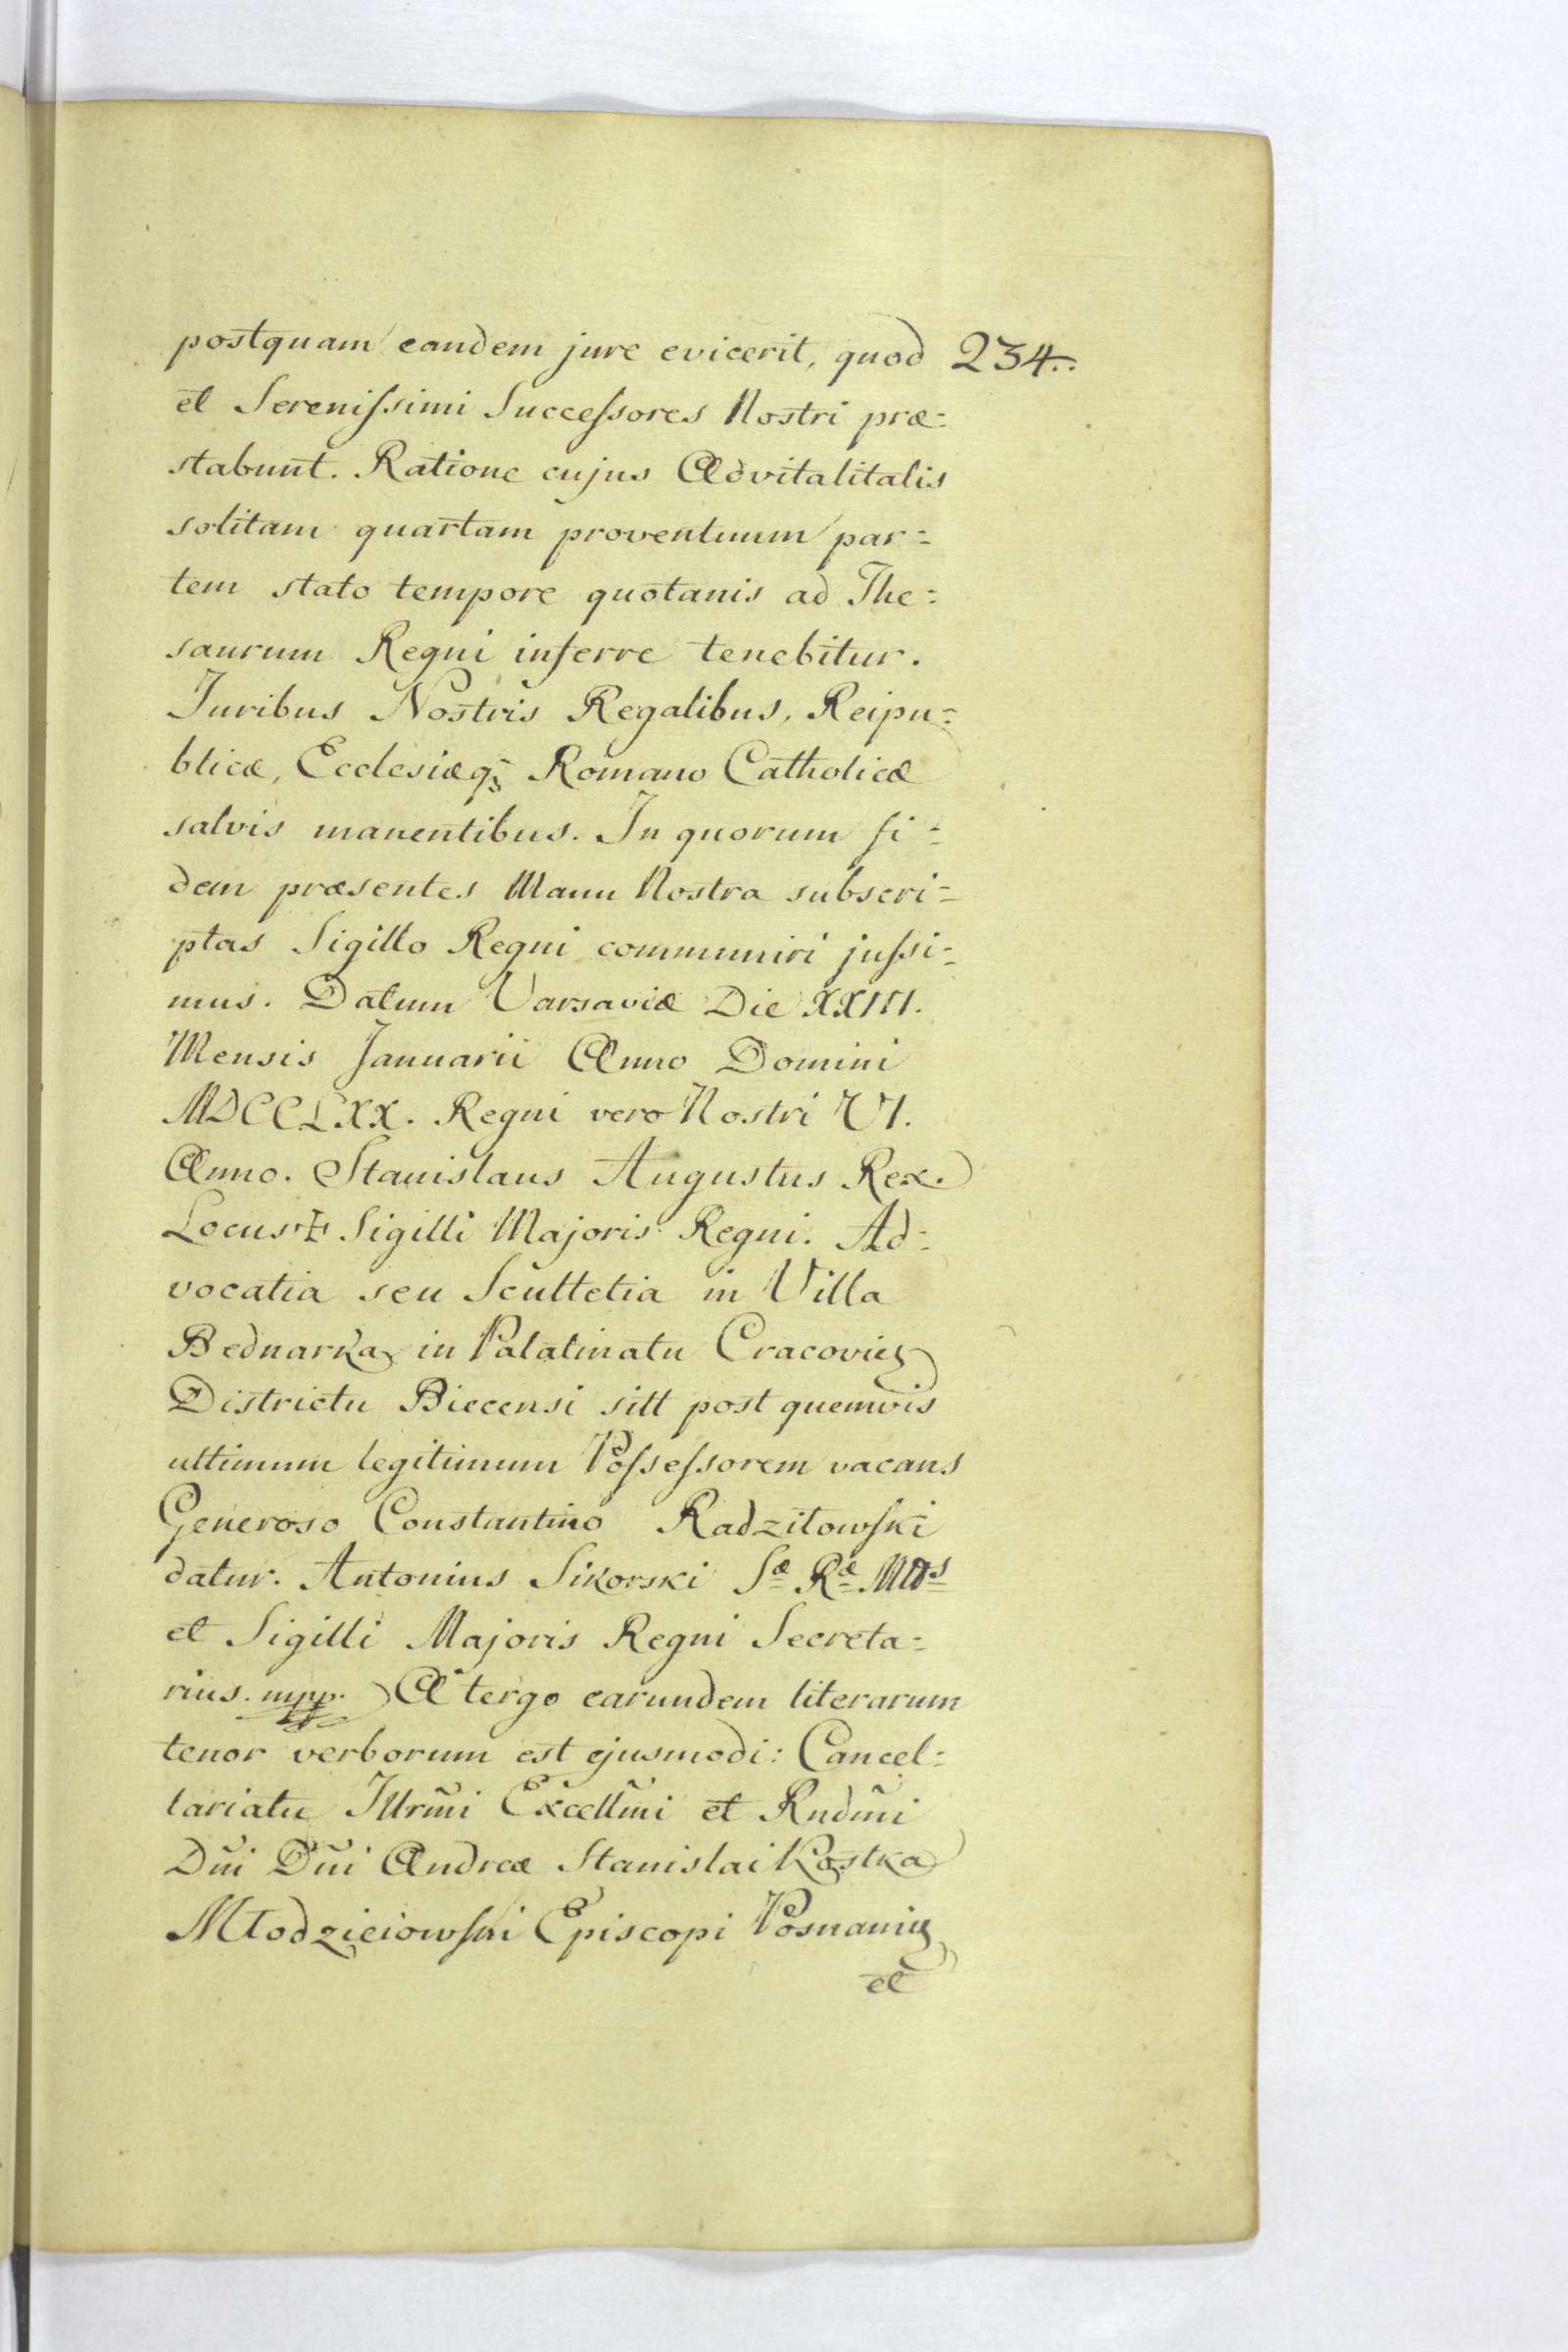 postquam eandem jure evicerit, quod 234..
et Serenissimi Successores Nostri præ=
stabunt. Ratione cujus Advitalitalis
solitam quartam proventuum par=
tem stato tempore quotanis ad The=
saurum Regni inferre tenebitur.
Juribus Nostris Regalibus, Reipu=
blicæ, Ecclesiæq; Romano Catholicæ
salvis manentibus. In quorum fi=
dem præsentes Manu Nostra subscri=
ptas Sigillo Regni communiri jussi=
mus. Datum Varsaviæ Die XXIII.
Mensis Januarii Anno Domini
MDCCLXX. Regni vero Nostri VI.
Anno. Stanislaus Augustus Rex.
Locus ✝ Sigilli Majoris Regni. Ad=
vocatia seu Scultetia in Villa
Bednarka in Palatinatu Cracovię
Districtu Biecensi sitt post quemvis
ultimum legitimum Possessorem vacans
Generoso Constantino Radziłowski
datur. Antonius Sikorski Sæ Ræ Mtts
et Sigilli Majoris Regni Secreta=
rius. mpp. A tergo earundem literarum
tenor verborum est ejusmodi: Cancel=
lariatu Illrmi Excellmi et Rndmi
Dni Dni Andreæ Stanislai Kostka
Młodzieiowski Episcopi Posnanię
et